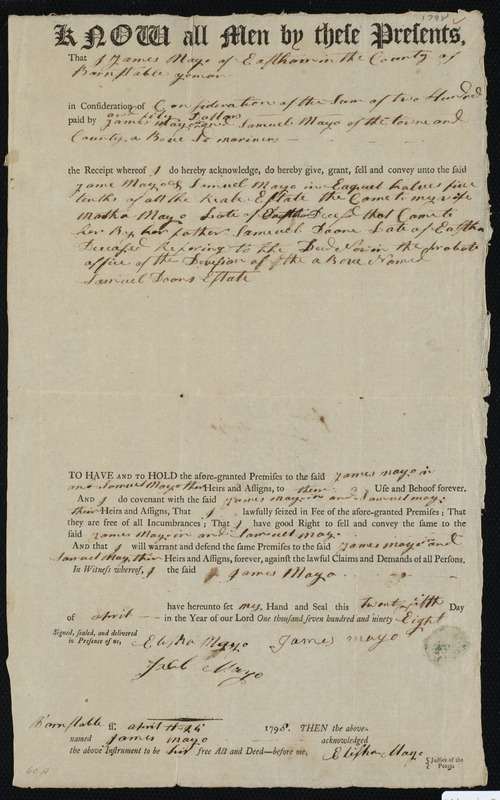 1798
KNOW all Men by these Presents,
That I James Mayo of Eastham in the County of
Barnstable yeoman
in Consideration of Consideration of the Sum of two Hundred
and fifty Dollars
paid by James Mayo and Samuel Mayo of the towne and
County a Bove Sd mariners
the Receipt whereof I do hereby acknowledge, do hereby give, grant, sell and convey unto the said
Jame Mayo & Samuel Mayo in Eaquel halves five
tenths of all the Reale Estate the Came to my wife
Late of Deces'd that Came to
her By her father Samuel Doane Late of
Deceased Refering to the in the probate
office of the Devision of the a Bove Named
Samuel Doans Estate
TO HAVE AND TO HOLD the afore-granted Premises to the said James mayo jr
and Samuel Mayo their Heirs and Assigns, to their Use and Behoof forever.
AND I do covenant with the said James mayo jr and Samuel mayo
their Heirs and Assigns, That I lawfully seized in Fee of the afore-granted Premises; That
they are free of all Incumbrances; That I have good Right to sell and convey the same to
the said James Mayo jr and Samuel mayo
AND that I will warrant and defend the same Premises to the said James mayo and
Samuel Mayo their Heirs and Assigns, forever, against the lawful Claims and Demands of all Persons.
In Witness whereof, I the said James Mayo
have hereunto set my Hand and Seal this twenty fifth Day
of april in the Year of our Lord One thousand seven hundred and ninety Eight
Signed, sealed, and delivered
in Presence of us, Elisha Mayo James mayo
Mayo
Barnstable ss. april 25 1798. THEN the above-
named James mayo acknowledged
the above Instrument to be his free Act and Deed—before me, Elisha Mayo Justice of the
Peace.